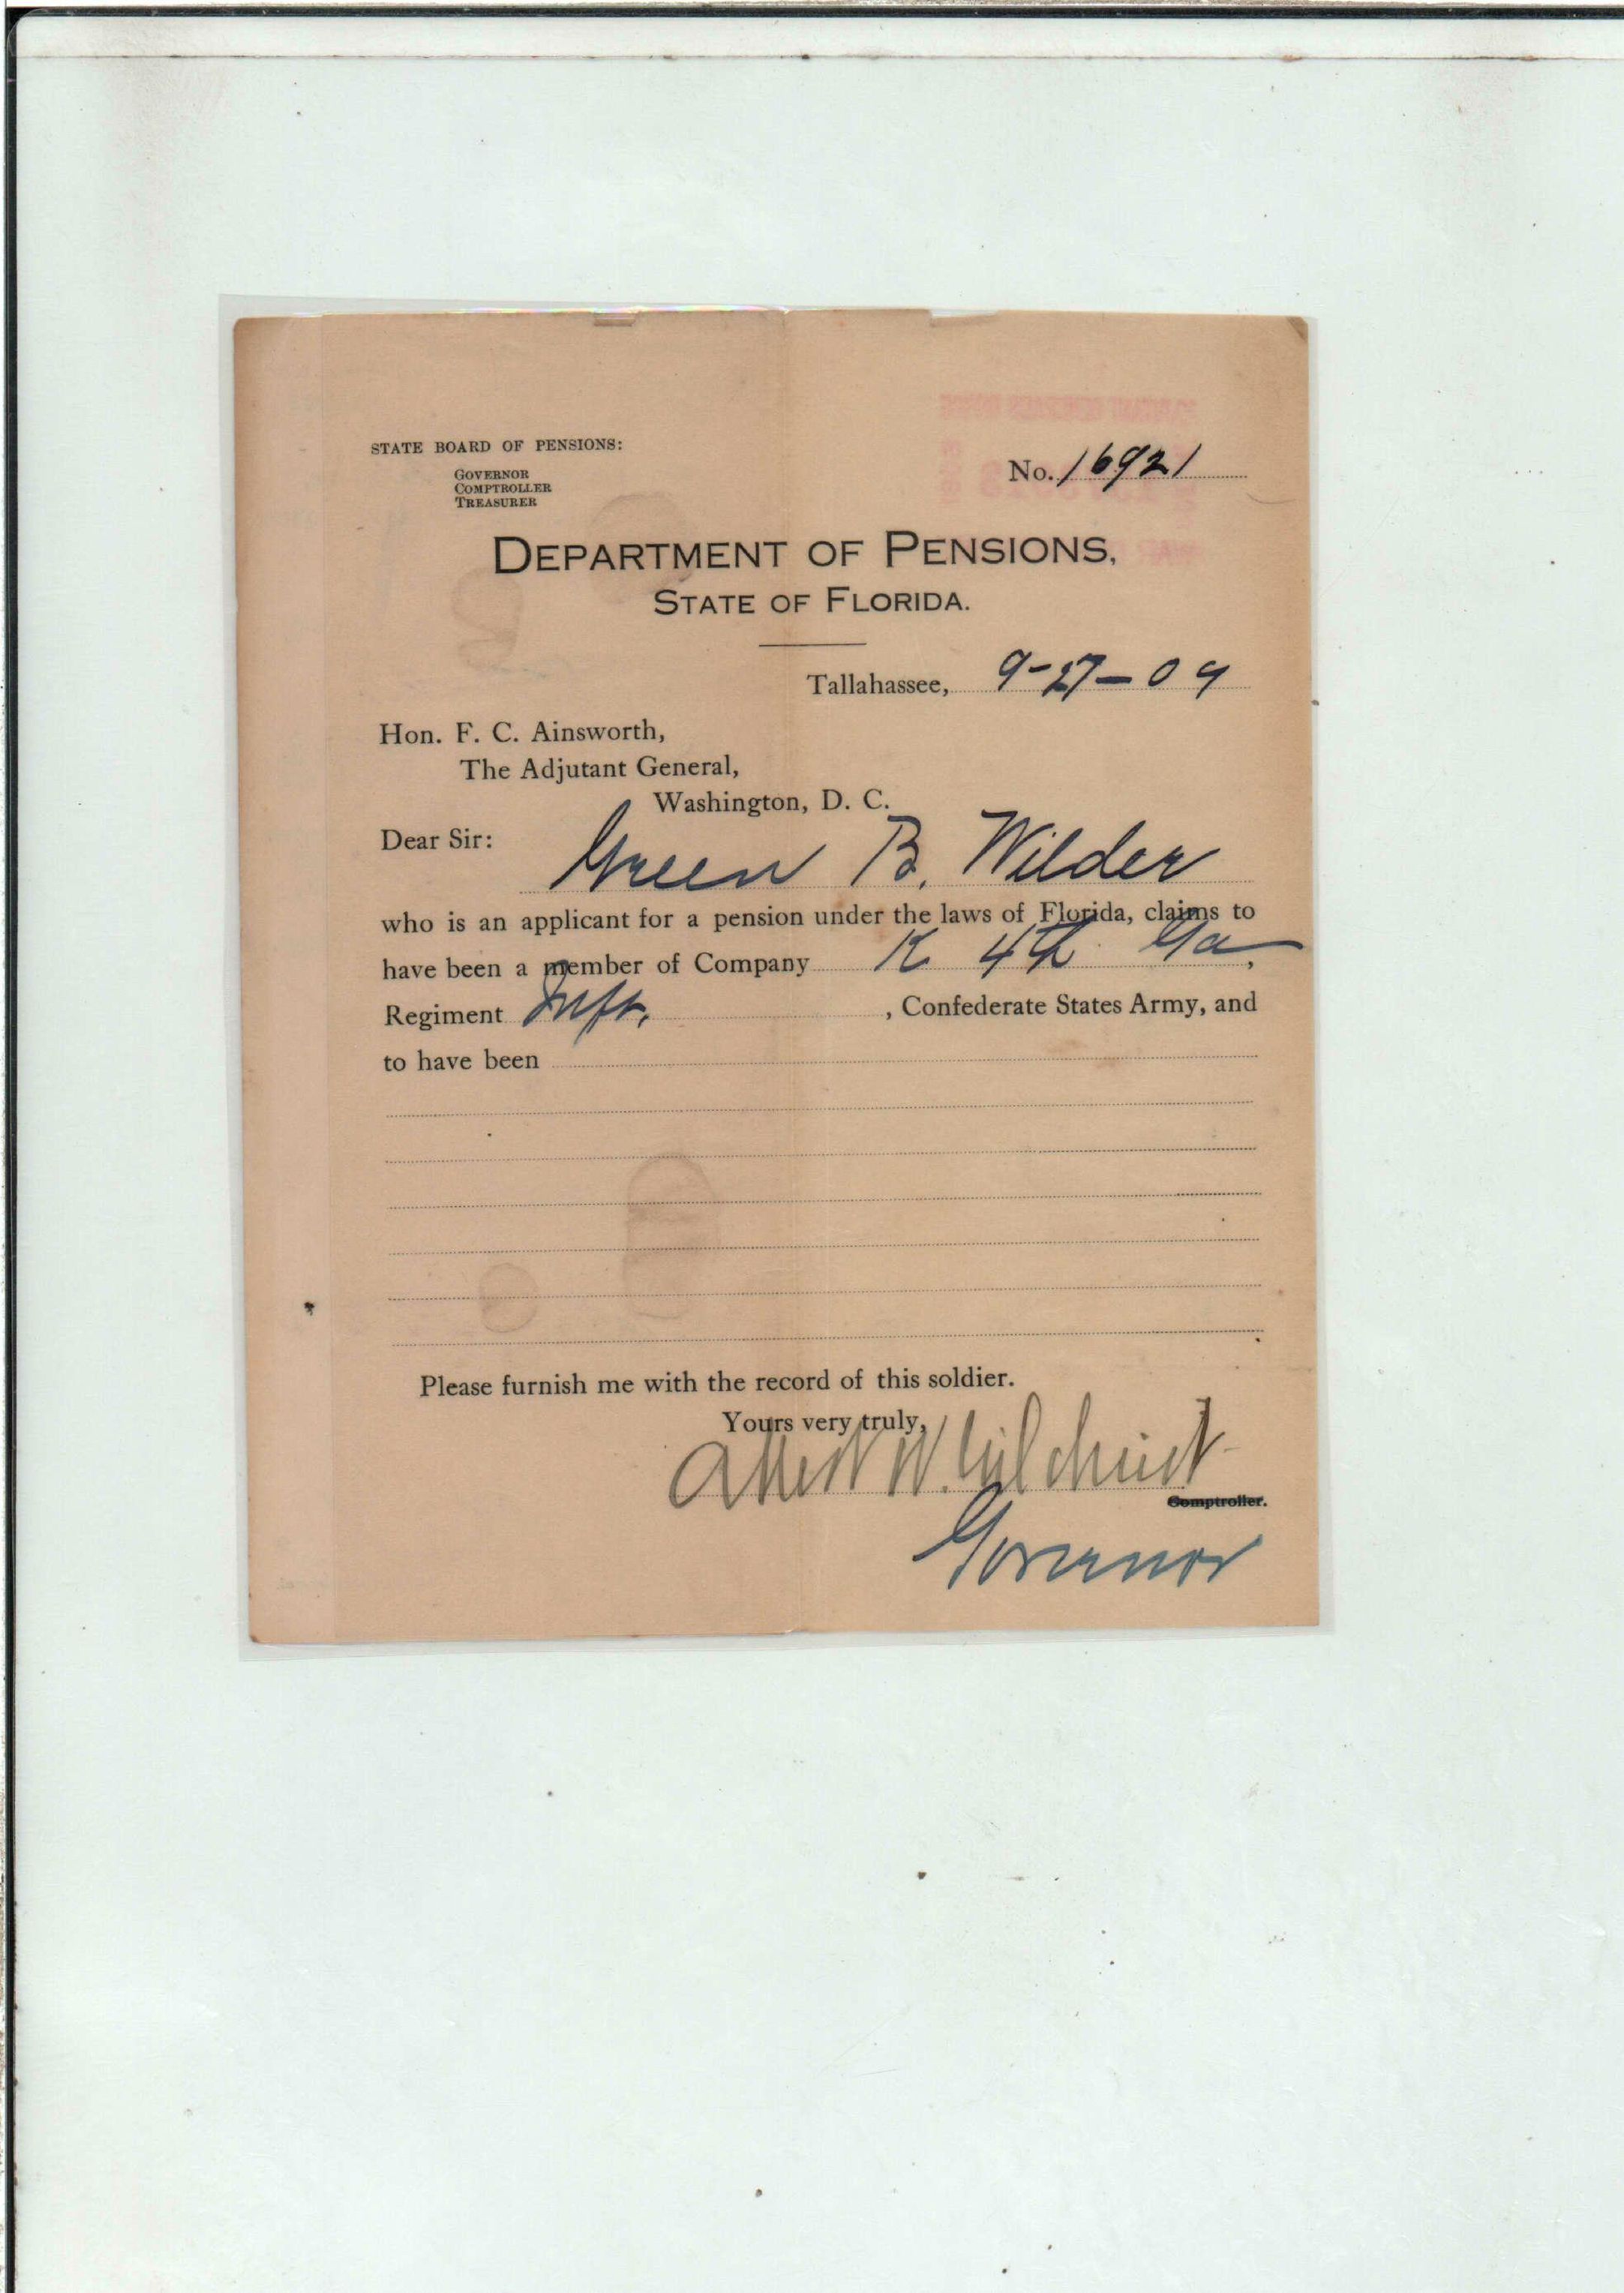 STATE BOARD OF PENSIONS:
GOVERNOR
COMPTROLLER
TREASURER
No. 16921
DEPARTMENT OF PENSIONS,
STATE OF FLORIDA.
Tallahassee, 9-27-09
Hon. F. C. Ainsworth,
The Adjutant General,
Washington, D. C.
Dear Sir:
Green B. Wilder
who is an applicant for a pension under the laws of Florida, claims to
have been a member of Company K 4th Ga,
Regiment Inft. , Confederate States Army, and
to have been
Please furnish me with the record of this soldier.
Yours very truly,
Albert W. Gilchrist
Comptroller.
Governor